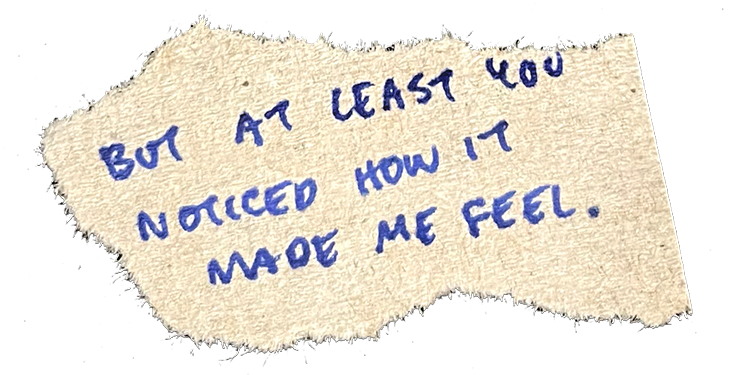 BUT AT LEAST YOU
NOTICED HOW IT
MADE ME FEEL.